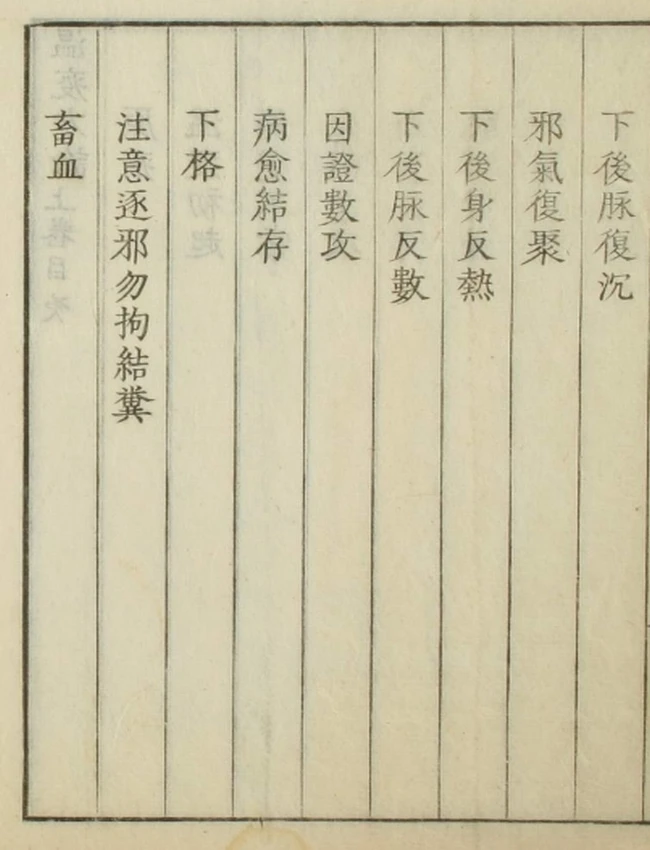 下後脉復沉
邪氣復聚
下後身反熱
下後脉反數
因證數攻
病愈結存
下格
注意逐邪勿拘結糞
畜血